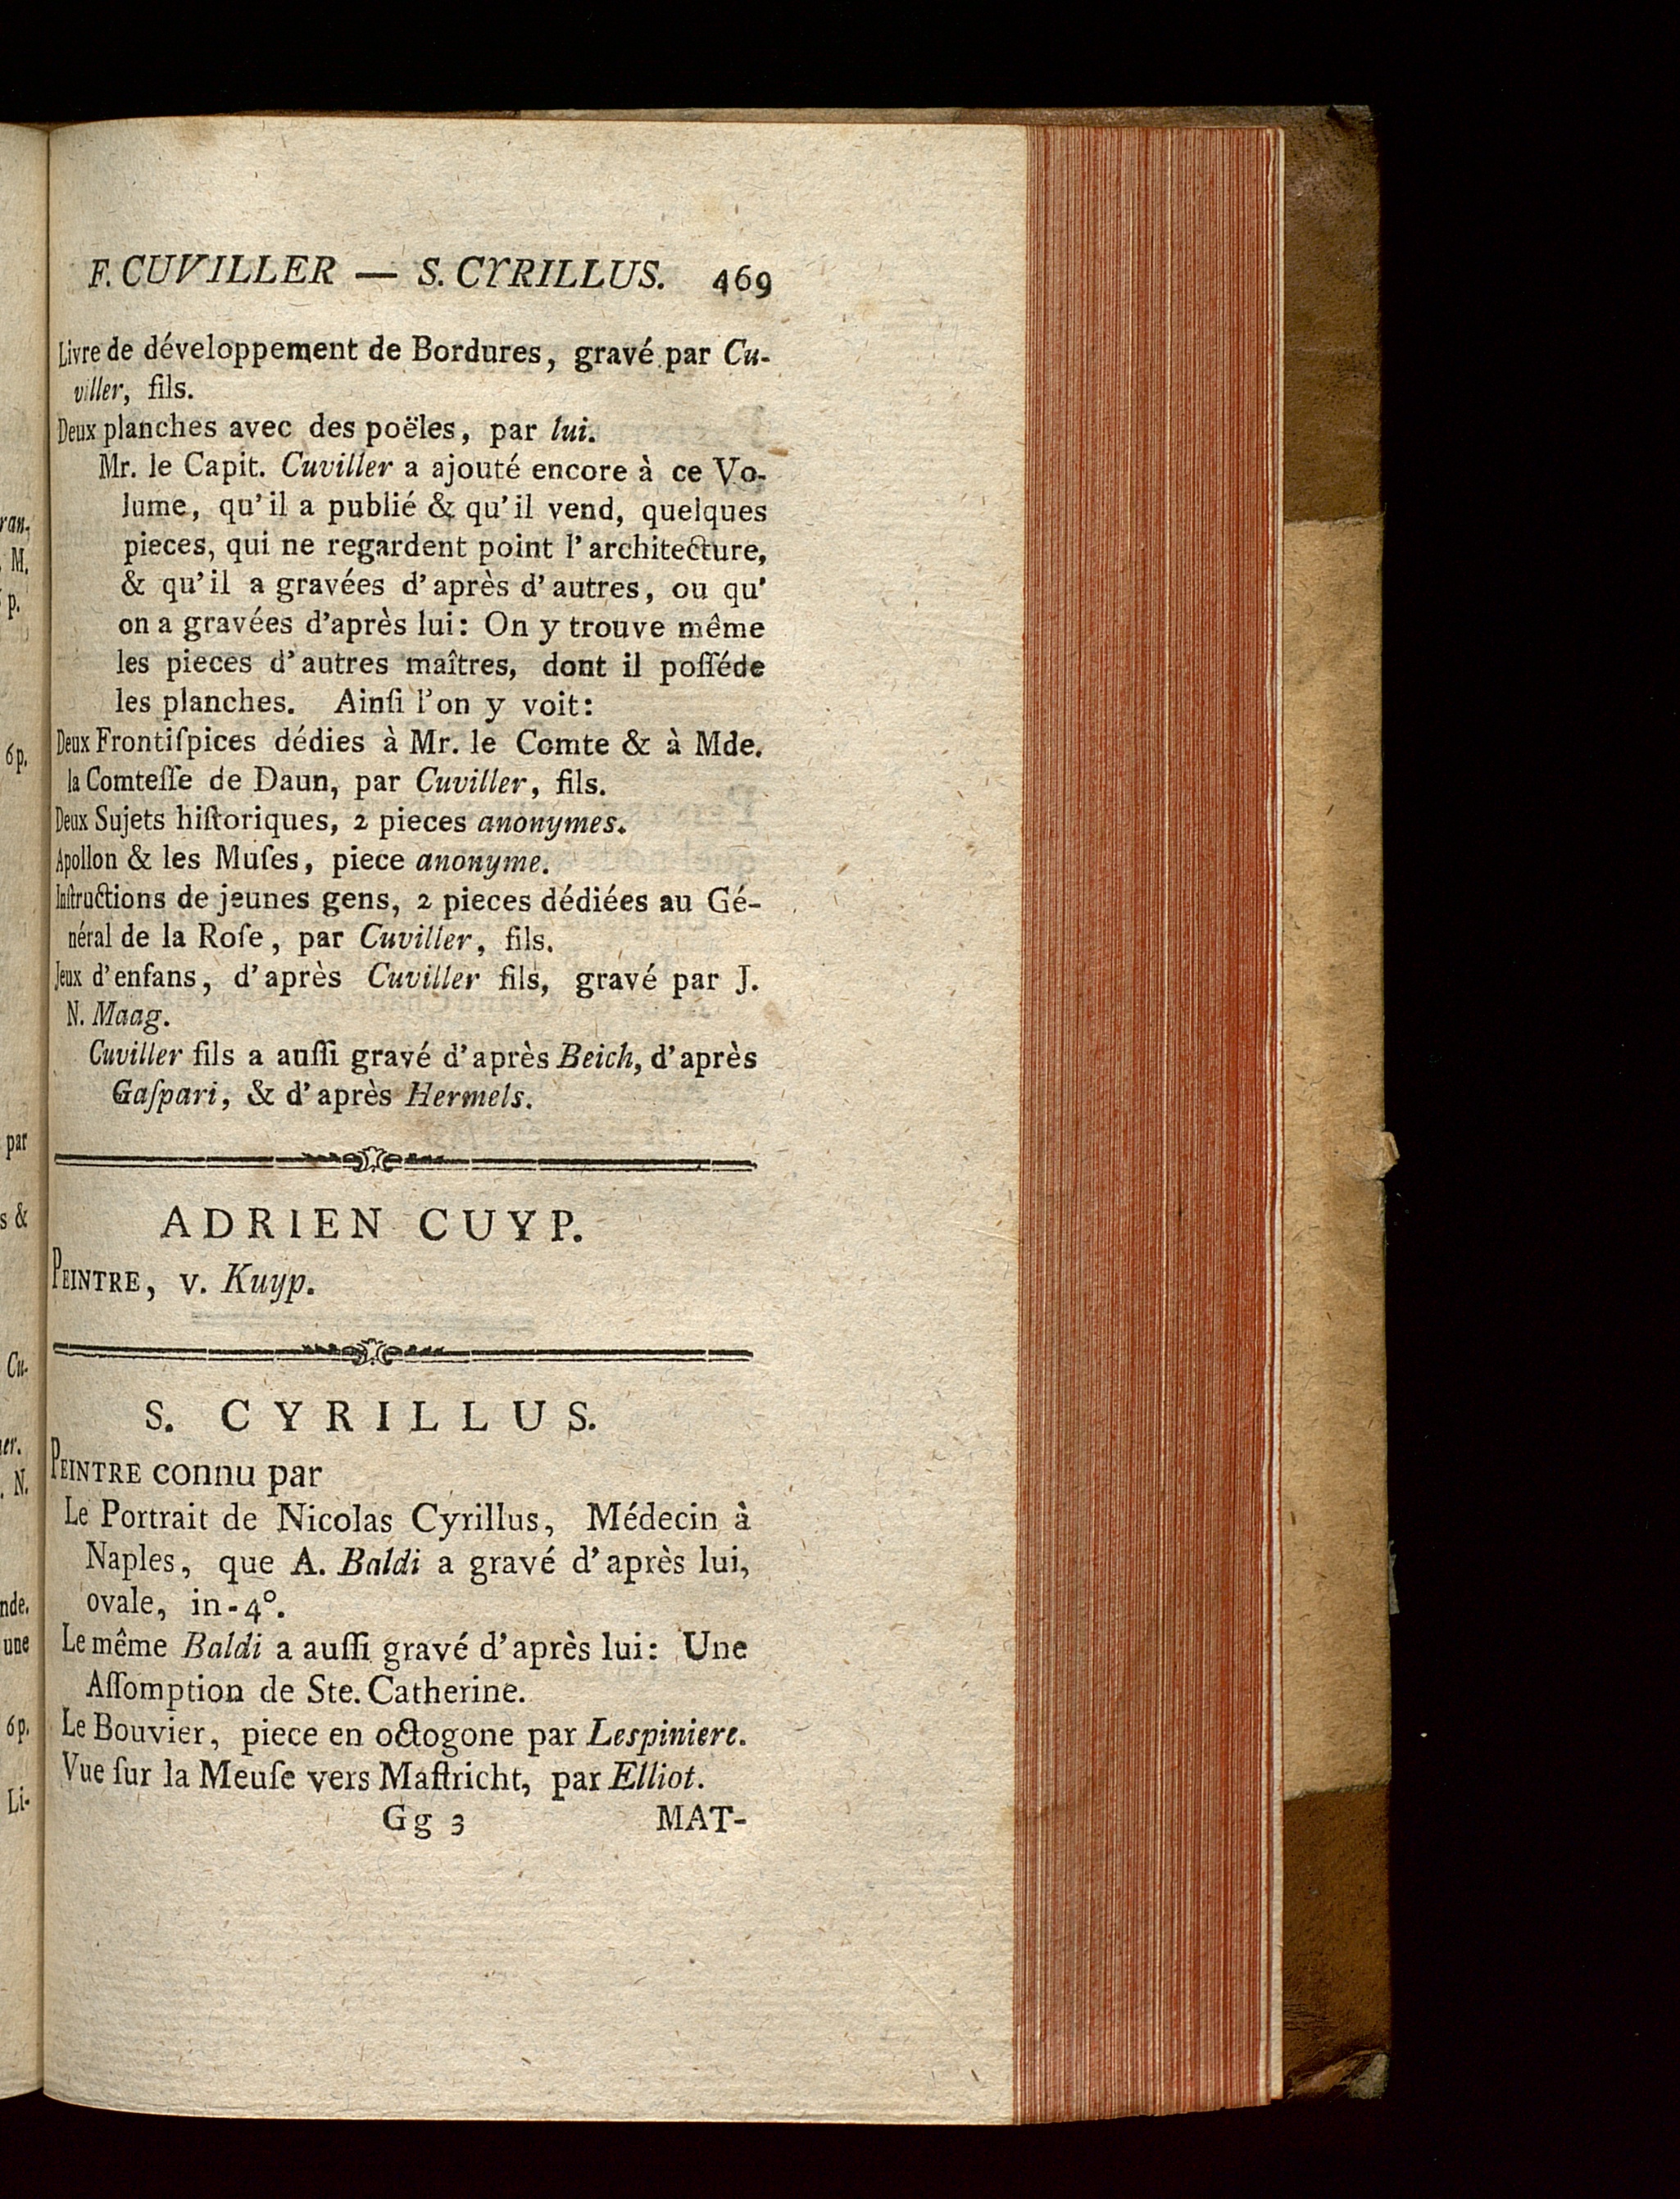 F. CUVILLER — S. CYRILLUS. 469
Livre de développement de Bordures, gravé par Cu-
viller, fils.
Deux planches avec des poëles, par lui.
Mr. le Capit. Cuviller a ajouté encore à ce Vo-
lume, qu'il a publié & qu'il vend, quelques
pieces, qui ne regardent point l'architecture,
& qu'il a gravées d'après d'autres, ou qu'
on a gravées d'après lui: On y trouve même
les pieces d'autres maîtres, dont il poſſéde
les planches. Ainſi l'on y voit:
Deux Frontiſpices dédies à Mr. le Comte & à Mde.
la Comteſſe de Daun, par Cuviller, fils.
Deux Sujets hiſtoriques, 2 pieces anonymes.
Apollon & les Muſes, piece anonyme.
Inſtructions de jeunes gens, 2 pieces dédiées au Gé-
néral de la Roſe, par Cuviller, fils.
Jeux d'enfans, d'après Cuviller fils, gravé par J.
N. Maag.
Cuviller fils a auſſi gravé d'après Beich, d'après
Gaſpari, & d'après Hermels.
ADRIEN CUYP.
PEINTRE, v. Kuyp.
S. CYRILLUS.
PEINTRE connu par
Le Portrait de Nicolas Cyrillus, Médecin à
Naples, que A. Baldi a gravé d'après lui,
ovale, in-4°.
Le même Baldi a auſſi gravé d'après lui: Une
Aſſomption de Ste. Catherine.
Le Bouvier, piece en octogone par Lespiniere.
Vue ſur la Meuſe vers Maſtricht, par Elliot.
Gg 3 MAT-
ran-
M.
p.
6p.
par
s &
Cu-
er.
N.
nde.
une
6p.
Li-